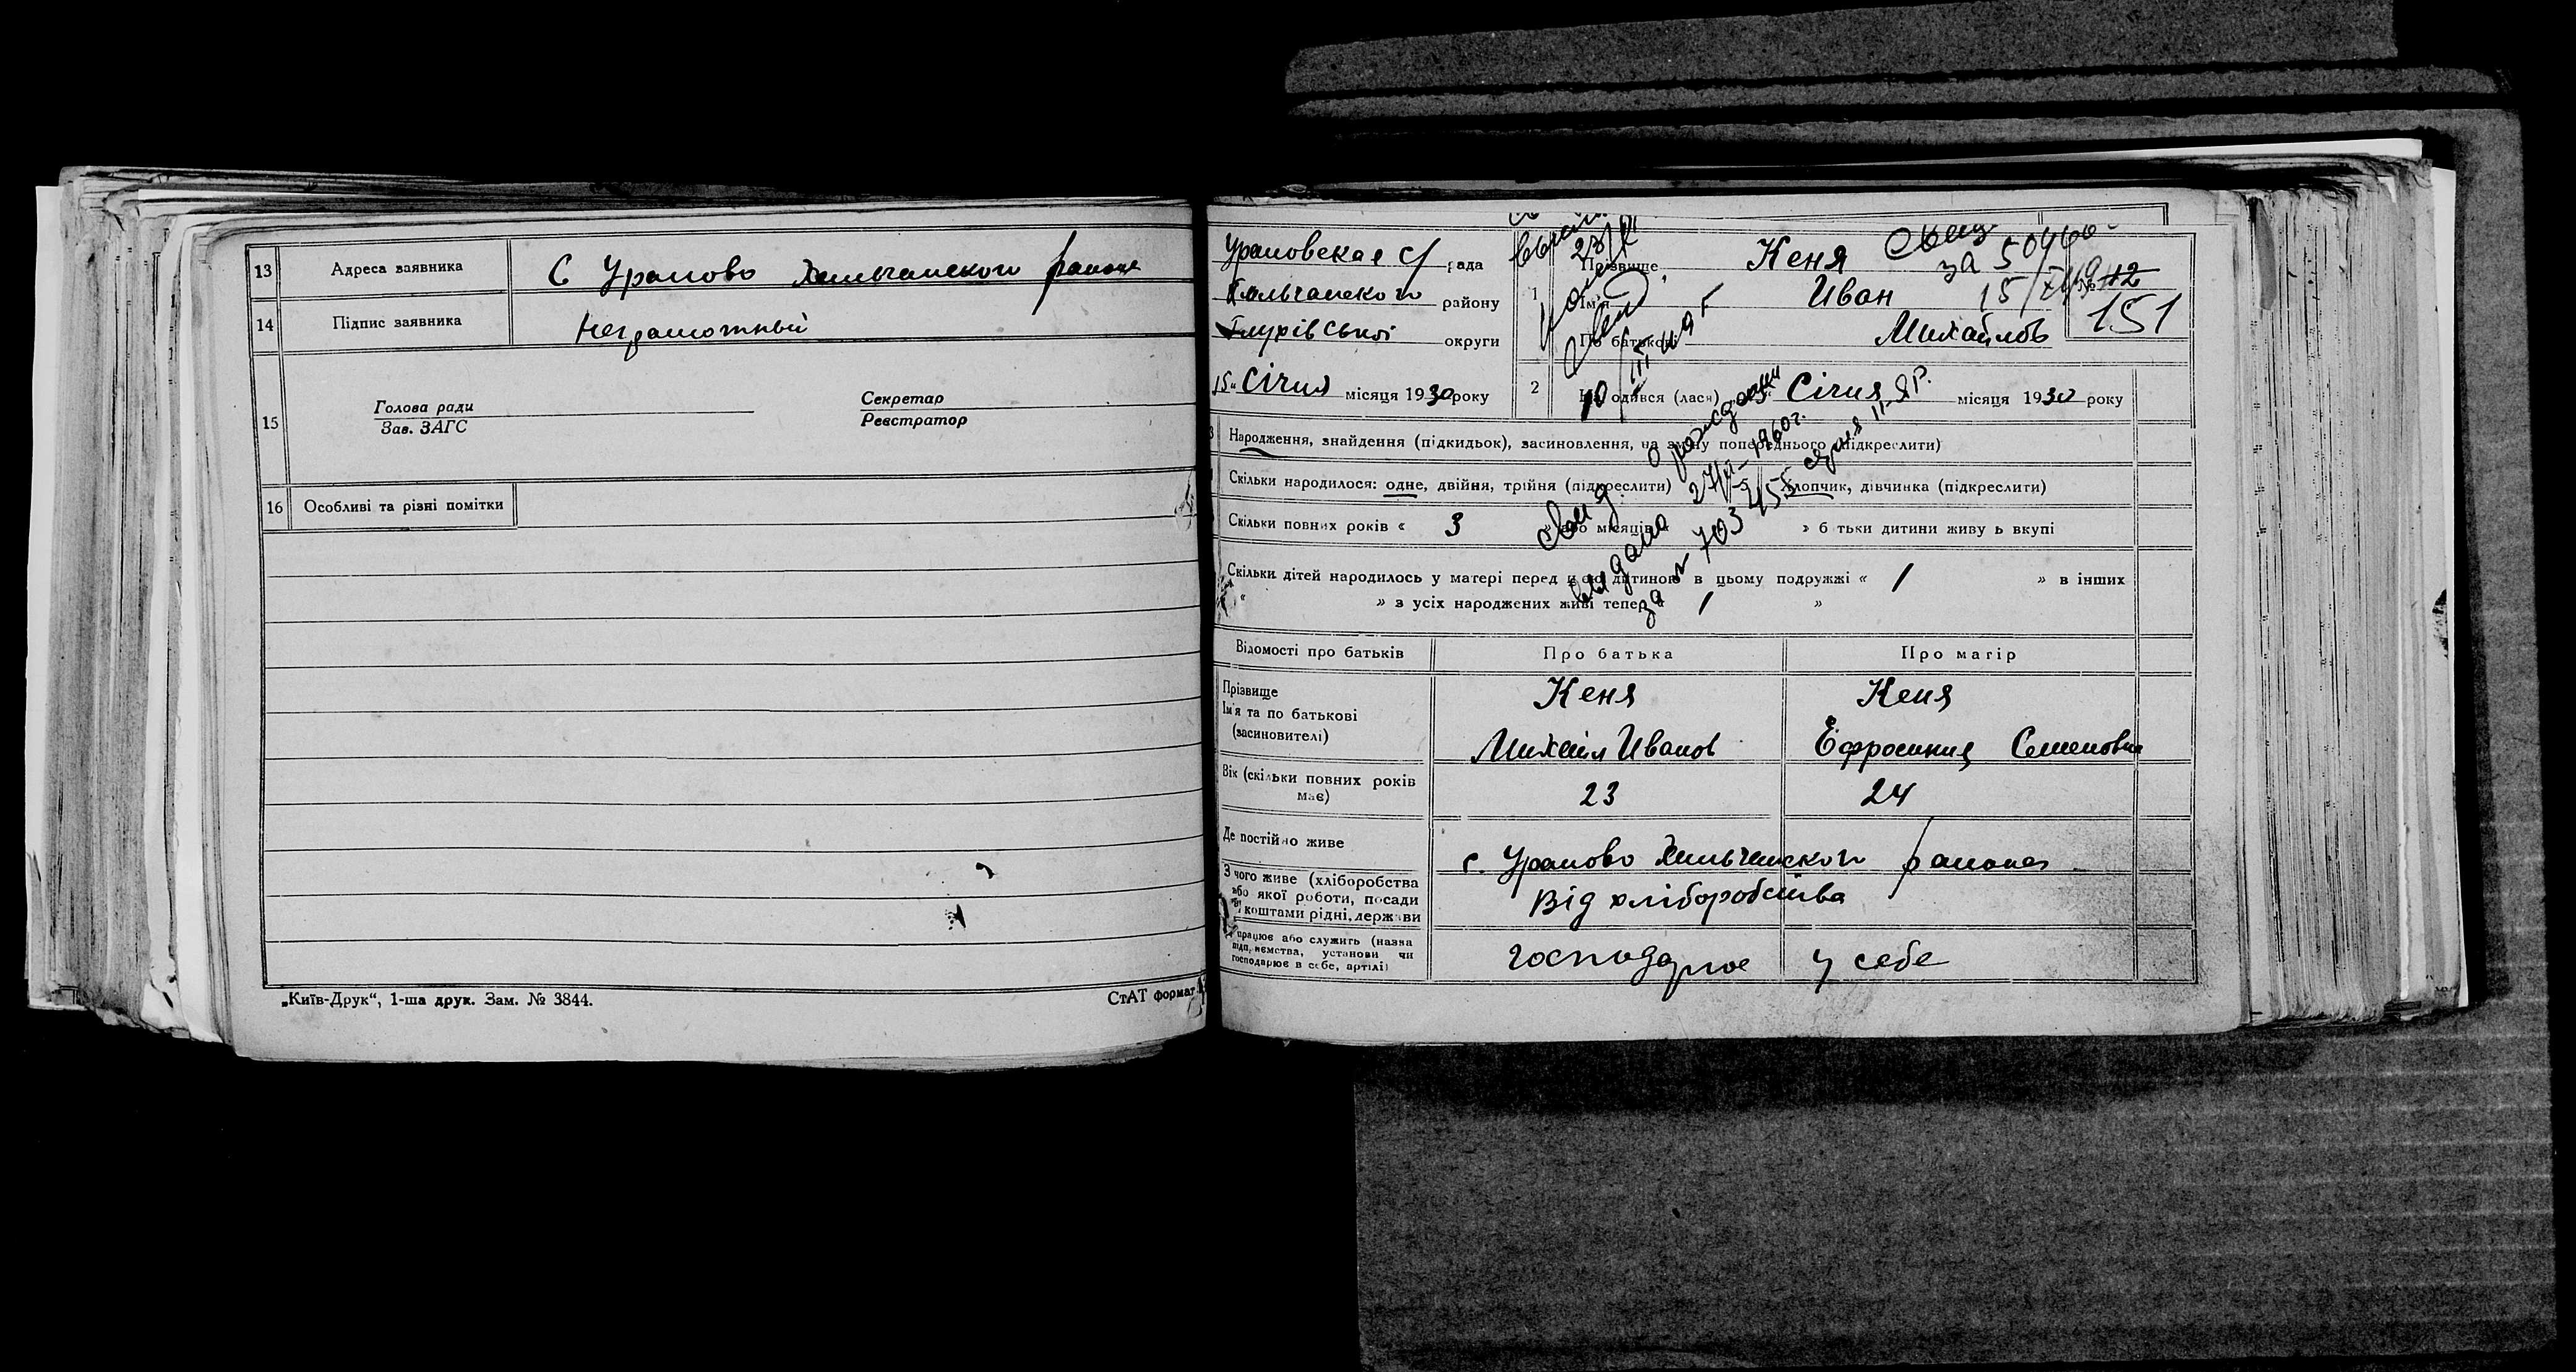 13 Адреса заявника С Уралово Хильчанского района
14 Підпис заявника Неграмотный
15 Голова ради Секретар
Зав. ЗАГС Реєстратор
16 Особливі та різні помітки
„Київ-Друк“, 1-ша друк. Зам. № 3844.
СтАТ формат
Ураловская с/ рада
Хильчанского району
Глухівської округи
15 Січня місяця 1930 року
1 Прізвище Кеня
Ім'я Иван
По батькові Михайлов
Свид
за 50466
15/
№ 112
151
2 Народився (лася) Січня місяця 1930 року
Народження, знайдення (підкидьок), засиновлення, на зміну попереднього (підкреслити)
Скільки народилося: одне, двійня, трійня (підкреслити) 5 Хлопчик, дівчинка (підкреслити)
Скільки повних років « 3 » або місяців « » б тьки дитини живу ь вкупі
Скільки дітей народилось у матері перед цією дитиною в цьому подружжі « 1 » в інших
« » з усіх народжених живі тепер « 1 »
Свид. о рождении
выдано 27/ 1960 г.
за № 703455 серия II-ЯР.
Відомості про батьків Про батька Про матір
Прізвище Кеня Кеня
Ім'я та по батькові
(засиновителі) Михаил Иванов Ефросиния Семеновна
Вік (скільки повних років
має) 23 24
Де постійно живе с. Уралово Хильчанского района
З чого живе (хліборобства
або якої роботи, посади
коштами рідні, держави Від хліборобства
працює або служить (назва
підприємства, установи чи
господарює в себе, артілі) господарює у себе